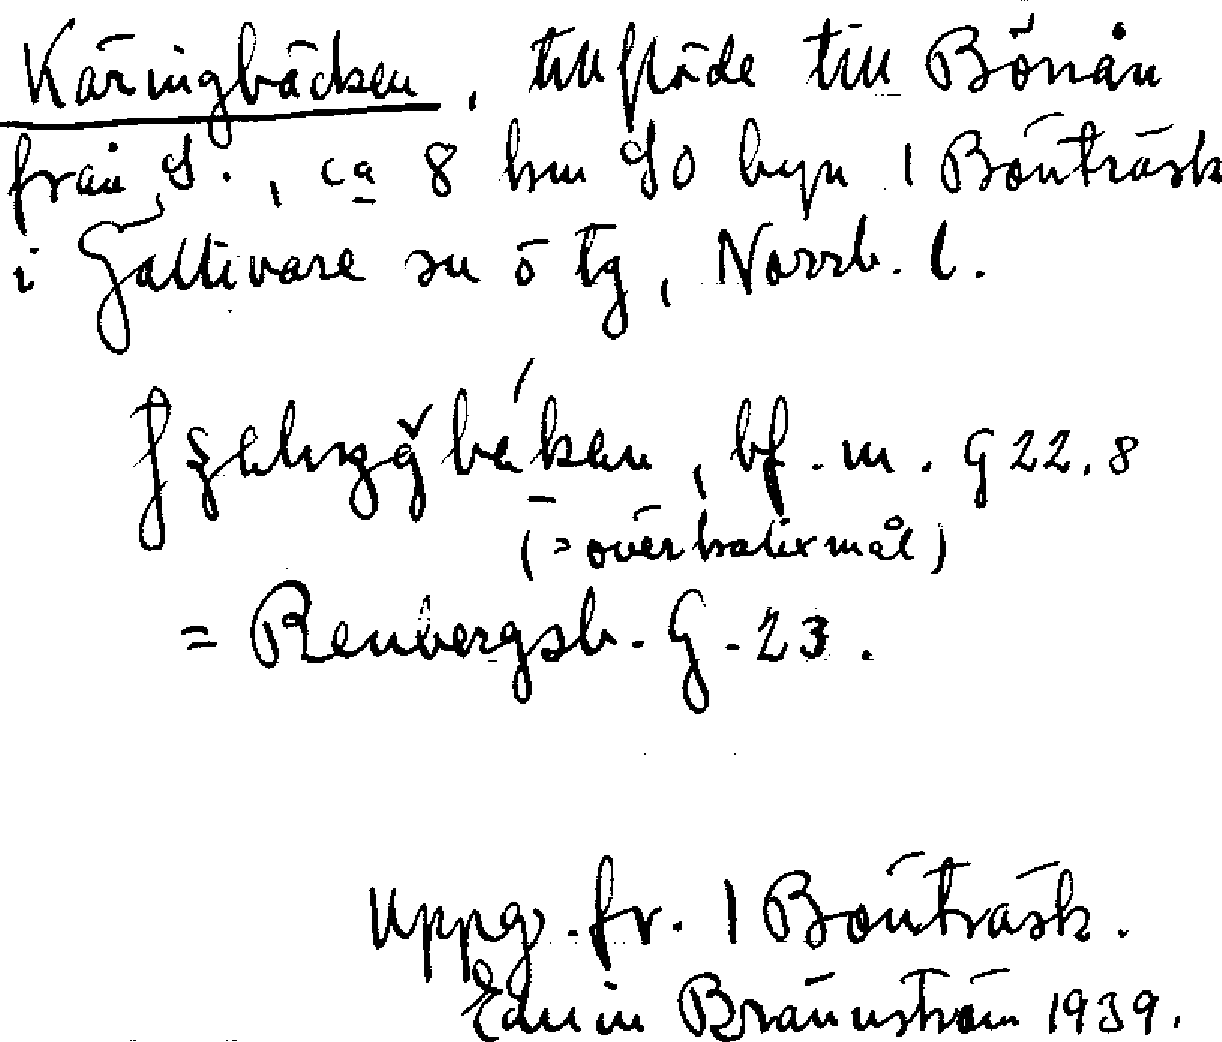 Käringbäcken, tillflöde till Bönån
från S., ca 8 km SO byn 1 Bönträsk
i Gällivare sn ö tg, Norrb. l.
bäken, bf. m. G 22.8
(= överkalixmål)
= Renbergsb. G. 23.
Uppg. fr. 1 Bönträsk.
Edvin Brännström 1939.